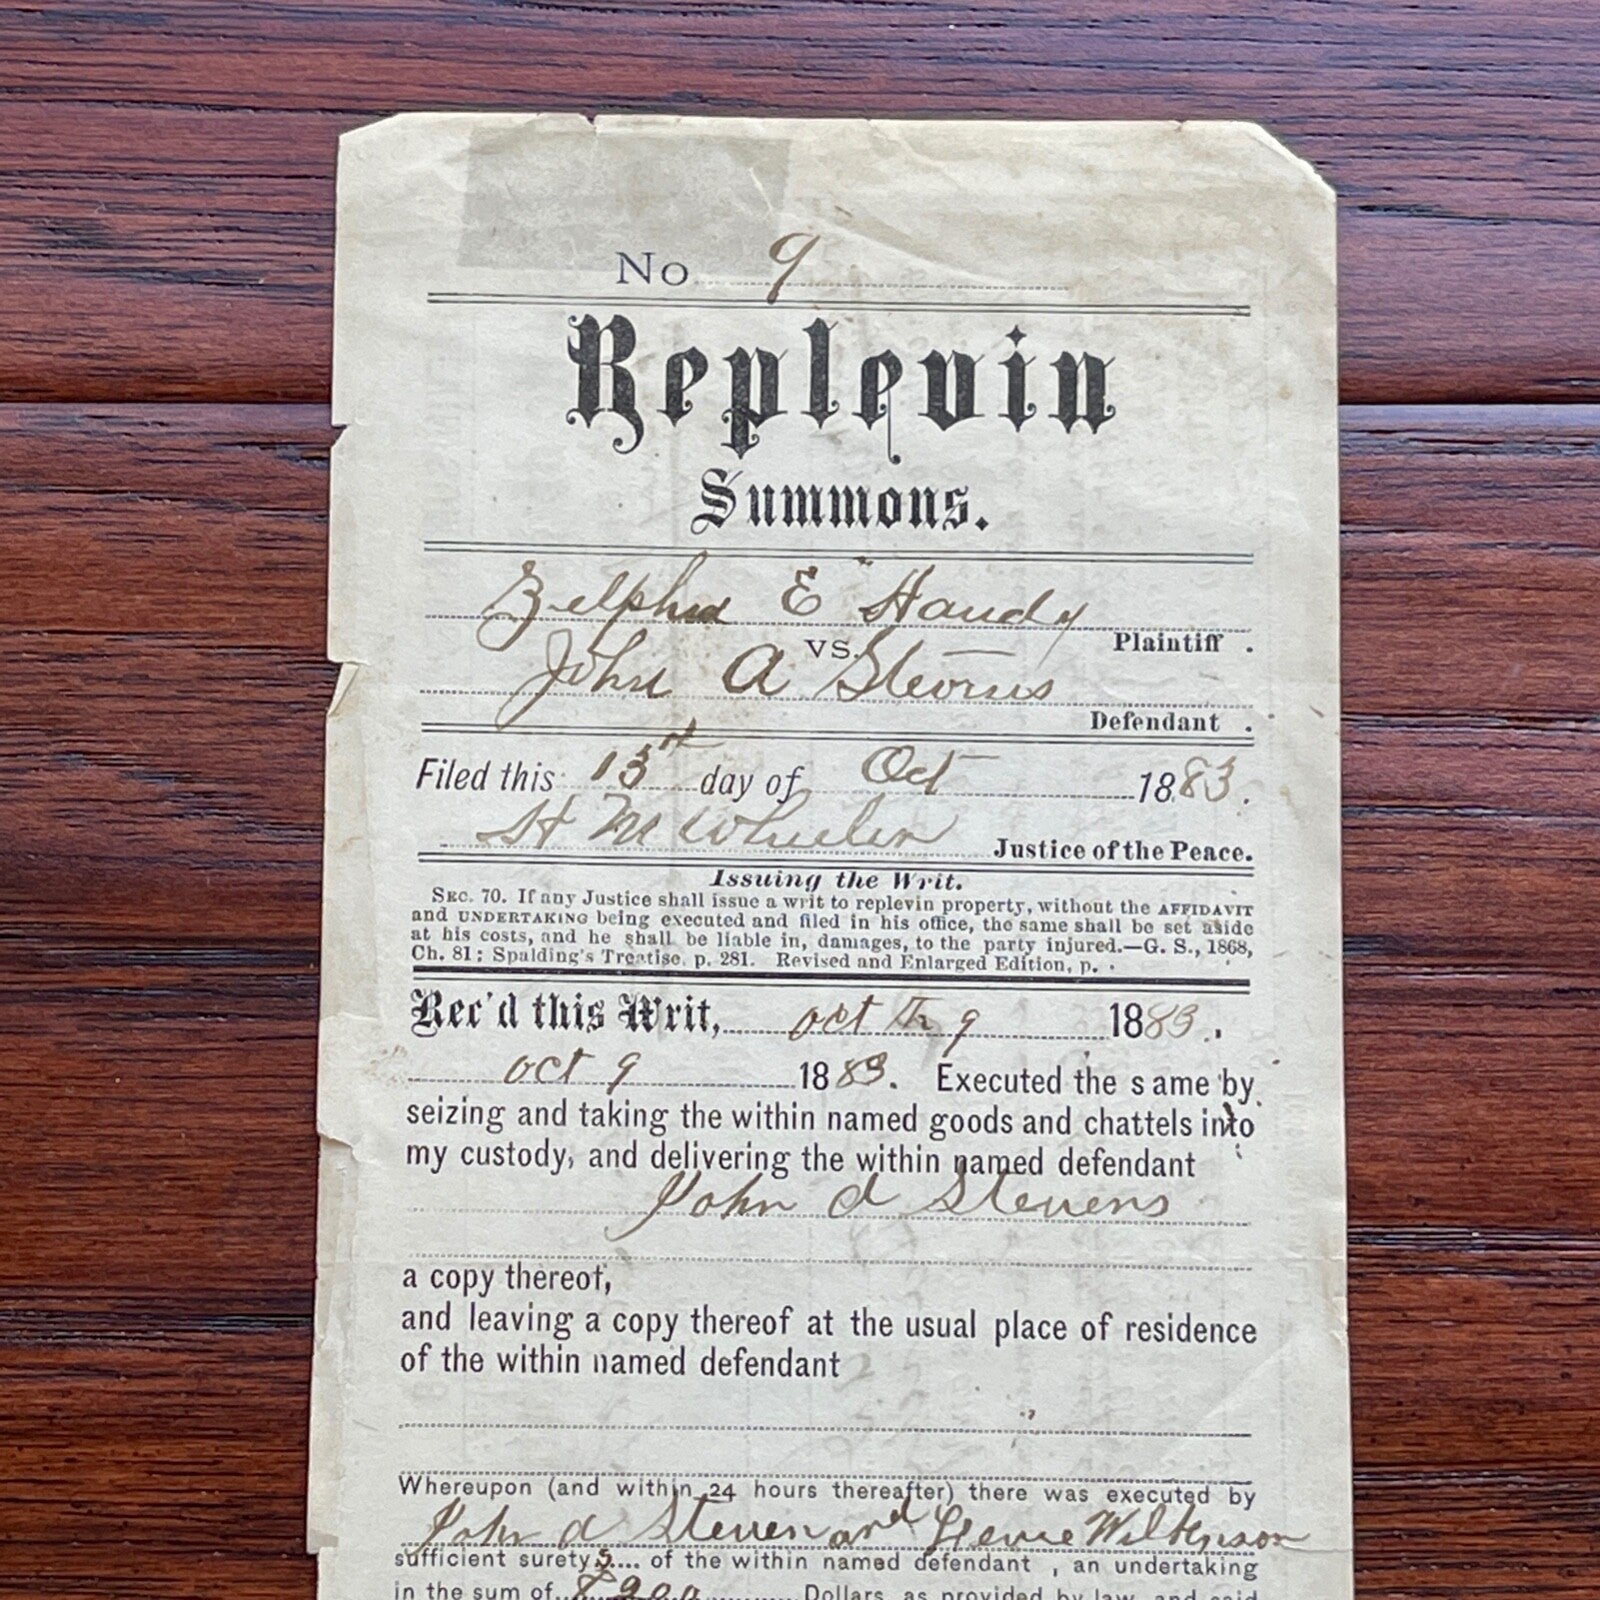 No 9
Replevin
Summons.
E Handy
Plaintiff .
vs.
John A Stevens
Defendant .
Filed this 13th day of Oct 1883.
H M Wheeler Justice of the Peace.
Issuing the Writ.
SEC. 70. If any Justice shall issue a writ to replevin property, without the AFFIDAVIT
and UNDERTAKING being executed and filed in his office, the same shall be set aside
at his costs, and he shall be liable in, damages, to the party injured.—G. S., 1868,
Ch. 81; Spalding's Treatise, p. 281. Revised and Enlarged Edition, p. .
Rec'd this Writ, oct 9 1883.
oct 9 1883. Executed the same by
seizing and taking the within named goods and chattels into
my custody, and delivering the within named defendant
John A Stevens
a copy thereof,
and leaving a copy thereof at the usual place of residence
of the within named defendant
Whereupon (and within 24 hours thereafter) there was executed by
John A Steven and Wilkinson
sufficient suretys.... of the within named defendant , an undertaking
in the sum of Dollars, as provided by law, and said